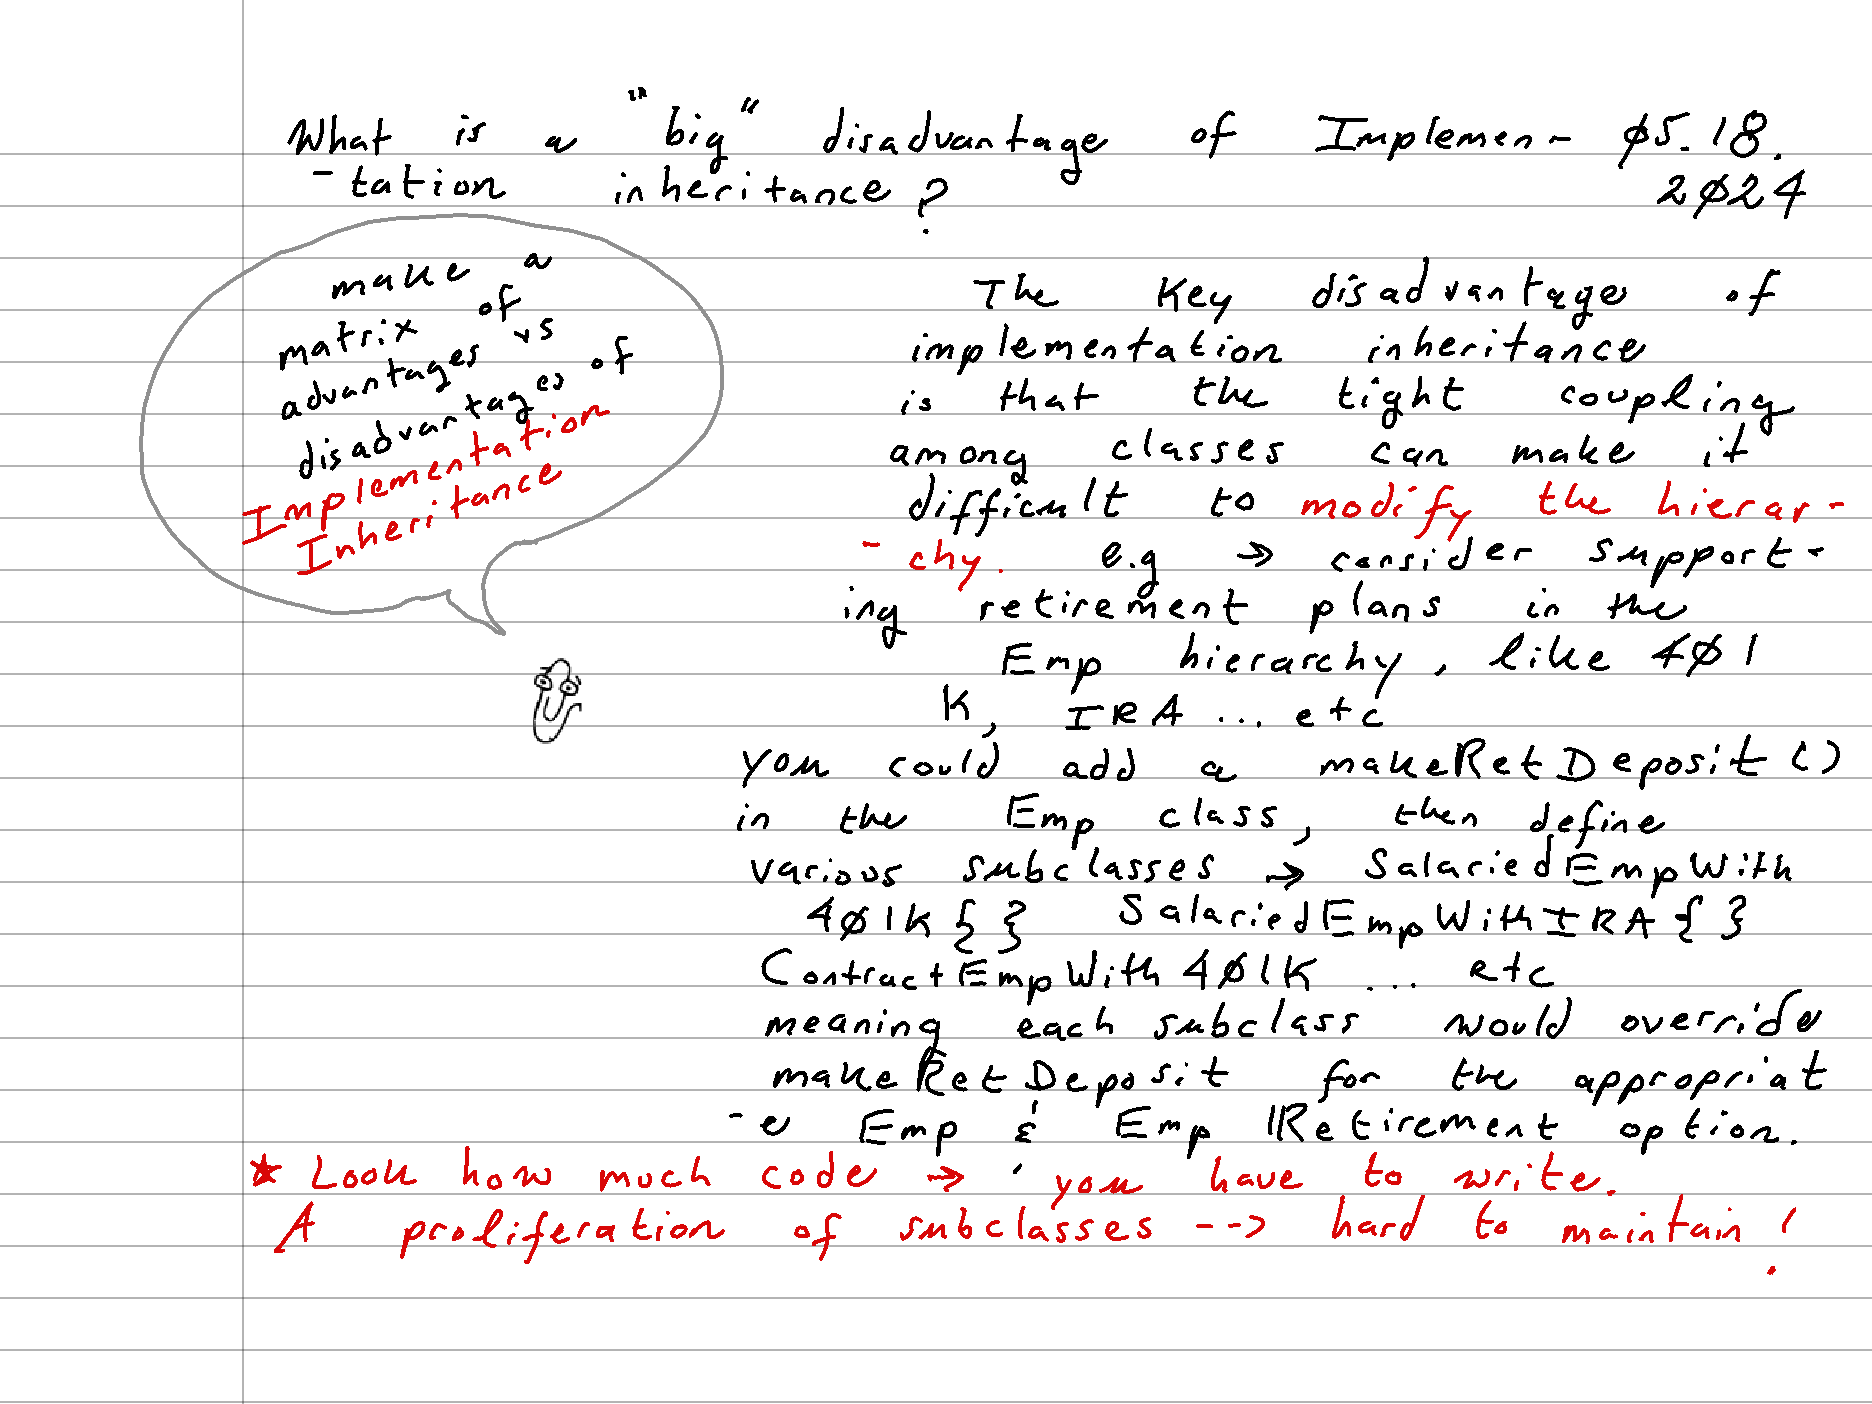 What is a "big" disadvantage of Implemen- 05.18.
-tation inheritance? 2024
make a
matrix of
advantages vs
disadvantages of
Implementation
Inheritance
The Key disadvantage of
implementation inheritance
is that the tight coupling
among classes can make it
difficult to modify the hierar-
-chy. e.g → consider support-
ing retirement plans in the
Emp hierarchy, like 401
K, IRA ... etc
you could add a makeRetDeposit()
in the Emp class, then define
various subclasses → SalariedEmpWith
401K{} SalariedEmpWithIRA{}
ContractEmpWith401K ... etc
meaning each subclass would override
makeRetDeposit for the appropriat
-e Emp & Emp Retirement option.
★ Look how much code → you have to write.
A proliferation of subclasses --> hard to maintain!